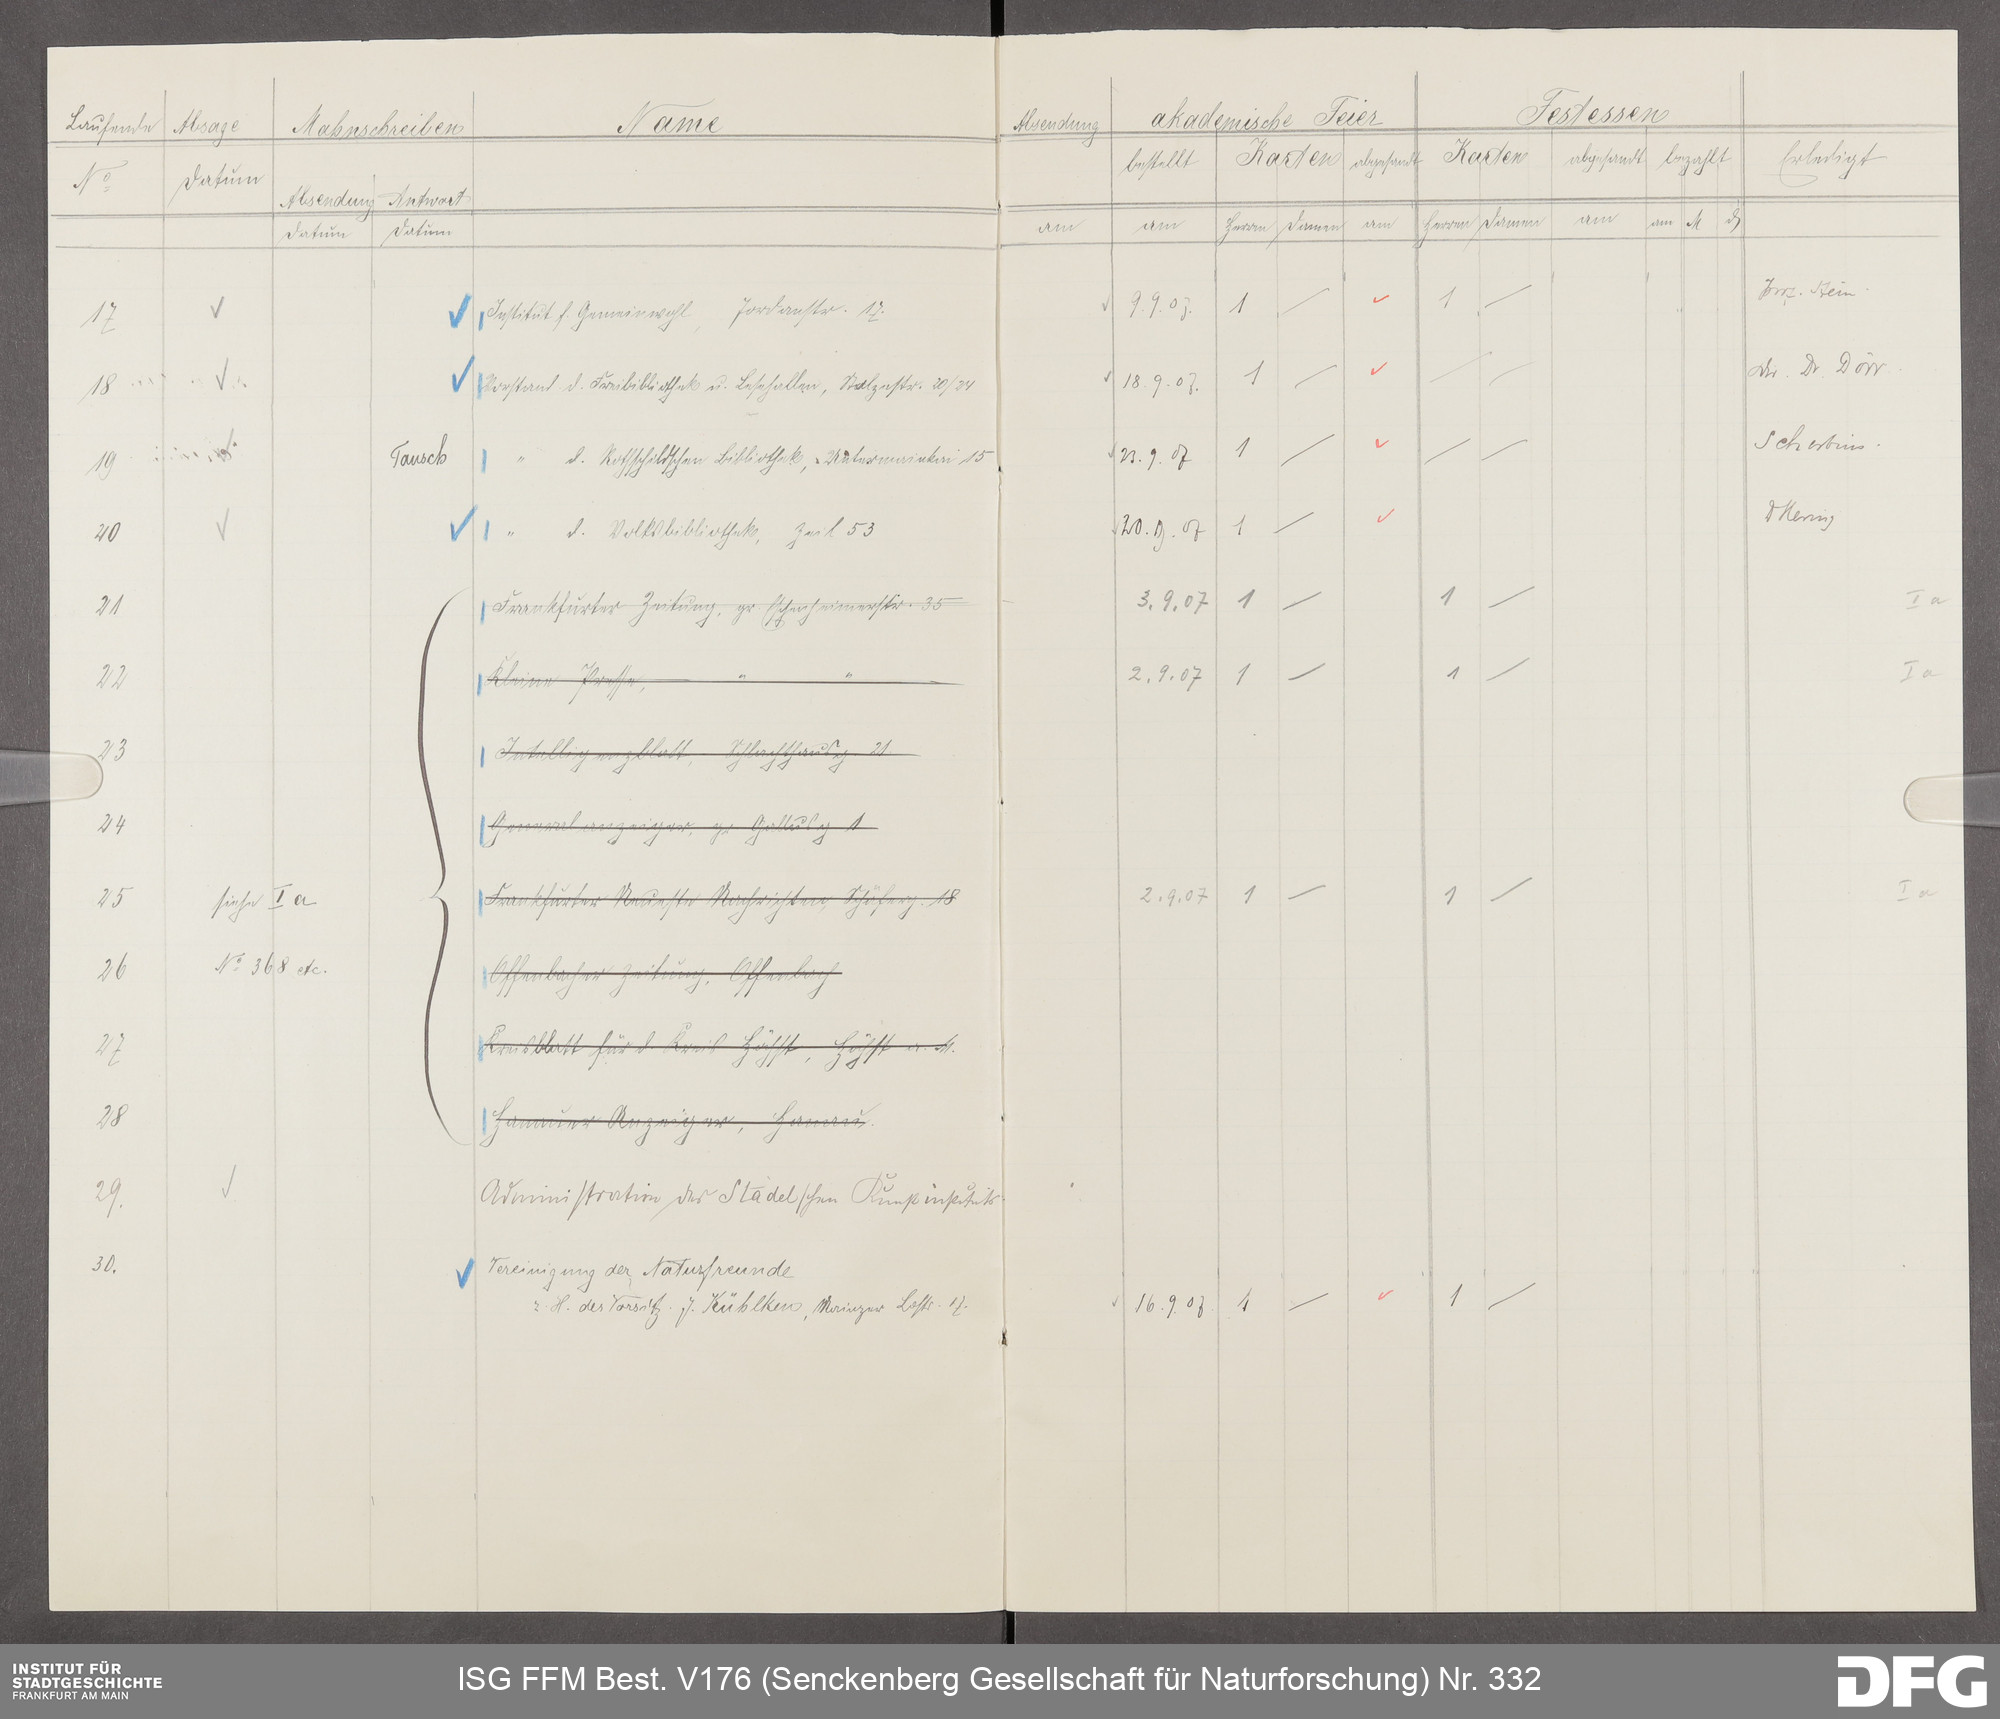 Laufende Absage Mahnschreiben Name Absendung akademische Feier Festessen
No Datum bestellt Karten abgesandt Karten abgesandt bezahlt Erledigt
Absendung Antwort
Datum Datum am am Herren Damen am Herren Damen am am M ₰
17 ✓ ✓ Institut f. Gemeinwohl, Jordanstr. 17. ✓ 9.9.07. 1 — ✓ 1 — Prof. Stein.
18 ✓ ✓ Vorstand d. Freibibliothek u. Lesehallen, Stolzestr. 20/24 ✓ 18.9.07. 1 — ✓ — — Dr. Dörr
19 Tausch " d. Rothschildschen Bibliothek, Untermainkai 15 ✓ 23.9.07 1 — ✓ — —
20 ✓ ✓ " d. Volksbibliothek, Zeil 53 ✓ 20.9.07 1 — ✓
21 Frankfurter Zeitung, gr. Eschenheimerstr. 35 3.9.07 1 — 1 — I a
22 Kleine Presse, " " 2.9.07 1 — 1 — I a
23 Intelligenzblatt, Schlachthausg. 21
24 Generalanzeiger, gr. Gallusg 1
25 siehe I a Frankfurter Neueste Nachrichten, Schäferg. 18 2.9.07 1 — 1 — I a
26 No 368 etc. Offenbacher Zeitung, Offenbach
27 Kreisblatt für d. Kreis Höchst, Höchst a. M.
28 Hanauer Anzeiger, Hanau.
29. ✓ Administration des Städelschen Kunstinstituts
30. ✓ Vereinigung der Naturfreunde
z. H. des Vorsitz. J. Kühlken, Mainzer Ldstr. 17. ✓ 16.9.07 1 — ✓ 1 —
INSTITUT FÜR
STADTGESCHICHTE
FRANKFURT AM MAIN
ISG FFM Best. V176 (Senckenberg Gesellschaft für Naturforschung) Nr. 332
DFG